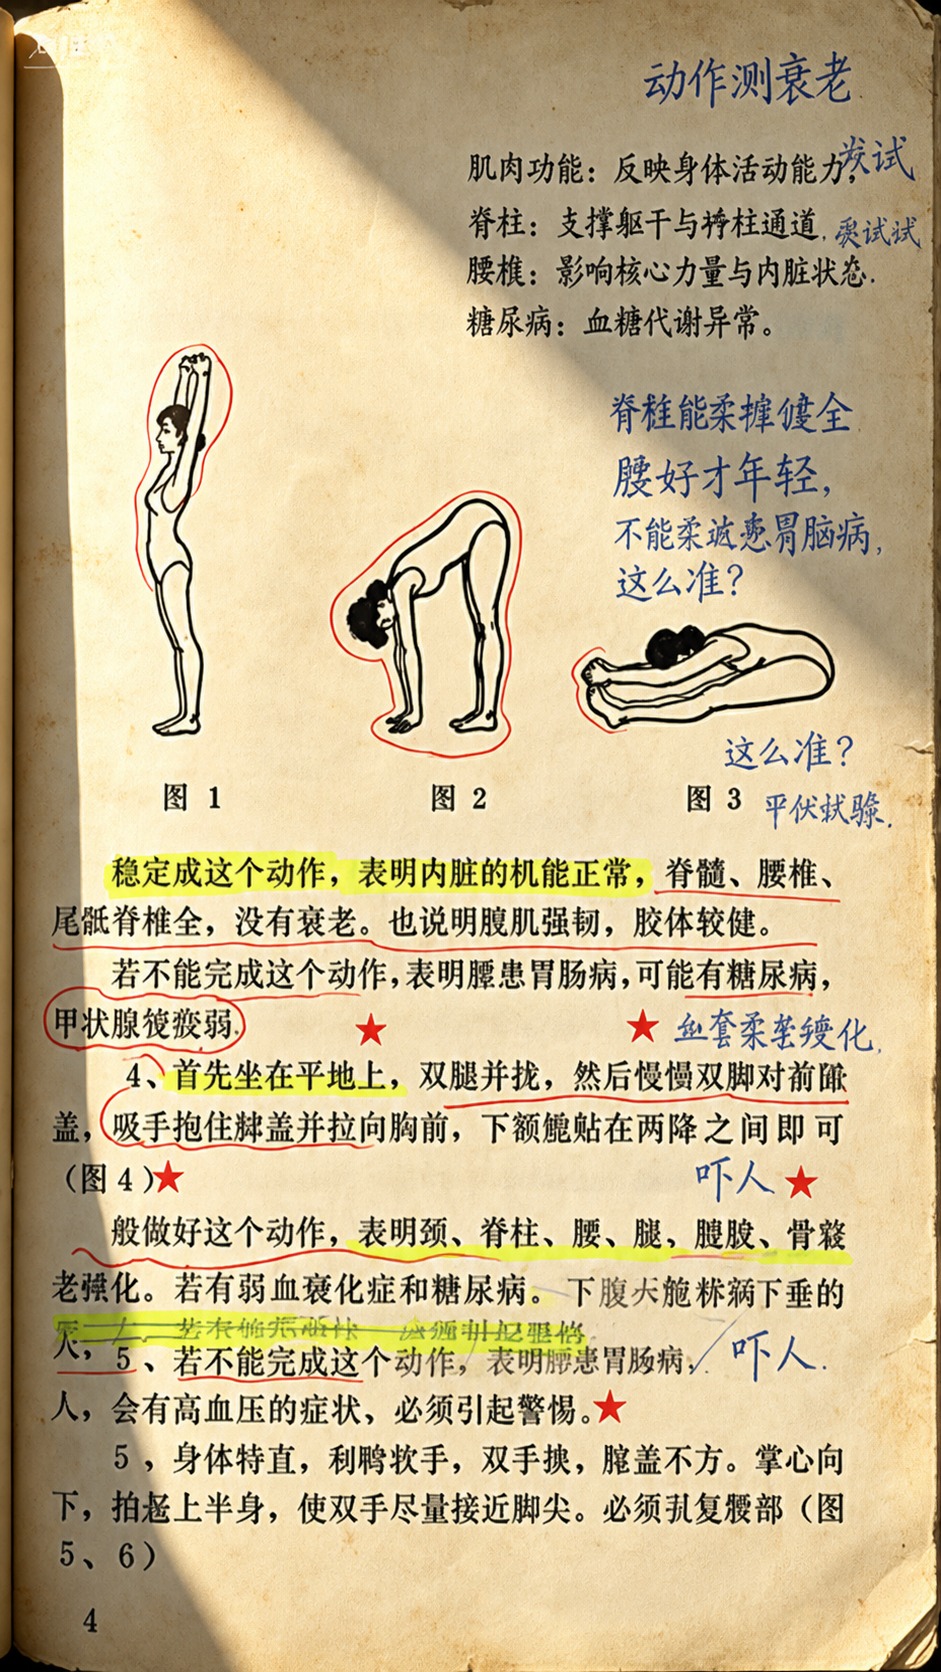 动作测衰老
肌肉功能：反映身体活动能力，试
脊柱：支撑躯干与柱通道.试试
腰椎：影响核心力量与内脏状态.
糖尿病：血糖代谢异常。
脊能柔全
腰好才年轻，
不能柔胃脑病，
这么准？
这么准？
图 1
图 2
图 3
平伏验.
稳定成这个动作，表明内脏的机能正常，脊髓、腰椎、
尾骶脊椎全，没有衰老。也说明腹肌强韧，胶体较健。
若不能完成这个动作，表明患胃肠病，可能有糖尿病，
甲状腺弱.
柔化.
4、首先坐在平地上，双腿并拢，然后慢慢双脚对前
盖，吸手抱住盖并拉向胸前，下额贴在两降之间即可
（图 4）
吓人
般做好这个动作，表明颈、脊柱、腰、腿、、骨
老强化。若有弱血衰化症和糖尿病。下腹下垂的
5、若不能完成这个动作，表明患胃肠病，
吓人.
人，会有高血压的症状、必须引起警惕。
5，身体特直，利手，双手，盖不方。掌心向
下，拍上半身，使双手尽量接近脚尖。必须复腰部（图
5、6）
4